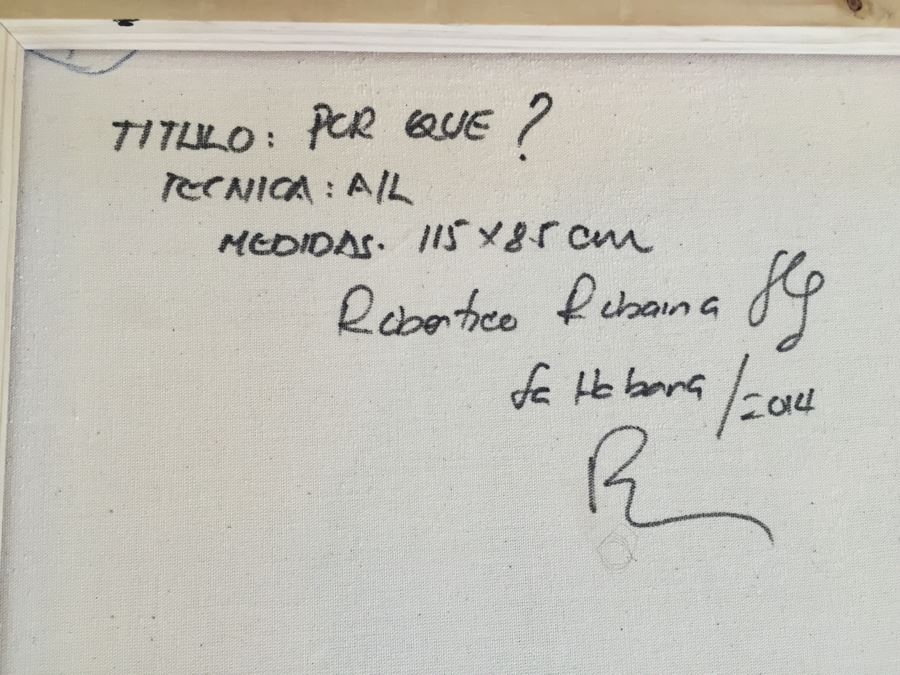 TITULO: POR QUE ?
TECNICA: A/L
MEDIDAS. 115 x 85 cm
Robertico Robaina
La Habana /2014